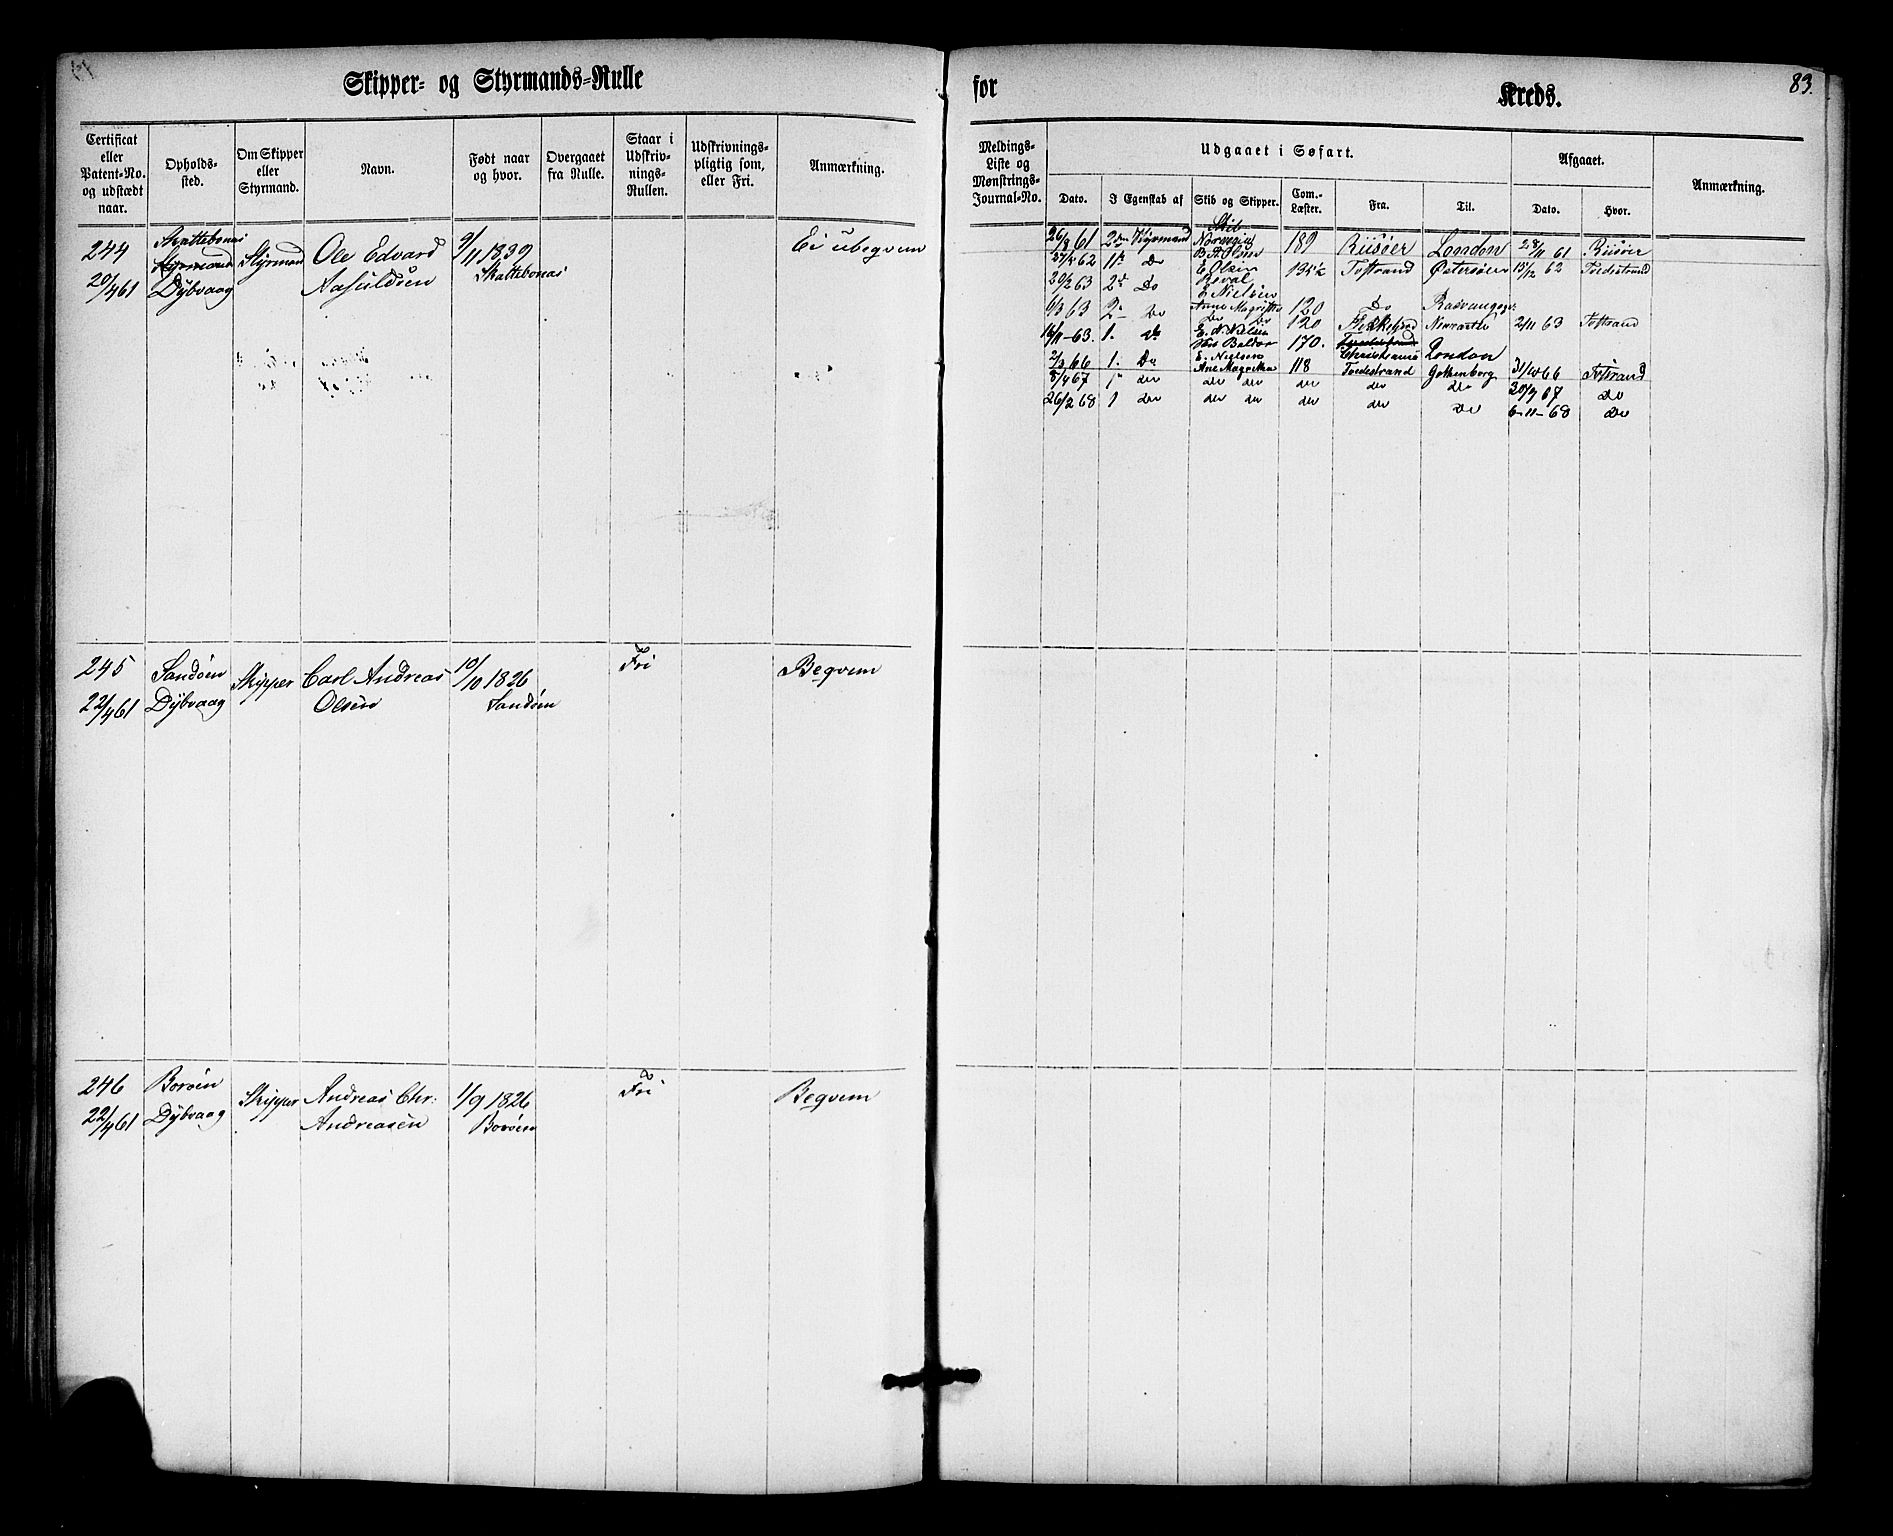 Skipper- og Styrmands-Rulle
for
Kreds.
83.
Certificat eller Patent-No. og udstædt naar.
Opholds-sted.
Om Skipper eller Styrmand.
Navn.
Født naar og hvor.
Overgaaet fra Rulle.
Staar i Udskriv-nings-Rullen.
Udskrivnings-pligtig som, eller Fri.
Anmærkning.
Meldings-Liste og Mønstrings-Journal-No.
Udgaaet i Søfart.
Afgaaet.
Anmærkning.
Dato.
I Egenskab af
Skib og Skipper.
Com.-Læster.
Fra.
Til.
Dato.
Hvor.
244 Skattebonæs Styrmand Ole Edvard 9/11 1839 Ei ubeqvem
20/4 61 Dybvaag Aasuldsen Skattebonæs
26/8 61 2den Styrmand Skib Norvegia 189 Riisøer London 28/11 61 Riisøer
27/4 62 1ste Do E Olsen Tvstrand Østersøen 15/12 62 Tvedestrand
20/2 63 2den Do E Nielsen
6/3 63 2 Do Anne Magretha 120 Do
16/11-63. 1. Do E. N. Nielsen 120 2/11 63 Tvstrand
2/3 66 1. Do E. Nielsen 170. Christiania London
8/4 67 1 do Ane Magretha 118 Tvedestrand Gothenborg 31/10 66 Tvstrand
26/2 68 1 do do do do do do 30/9 67 Do
do Do 6-11-68 Do
245 Sandøen Skipper Carl Andreas 10/10 1826 Fri Beqvem
22/4 61 Dybvaag Olsen Sandøen
246 Borøen Skipper Andreas Chr: 1/9 1826 Fri Beqvem
22/4 61 Dybvaag Andreasen Borøen